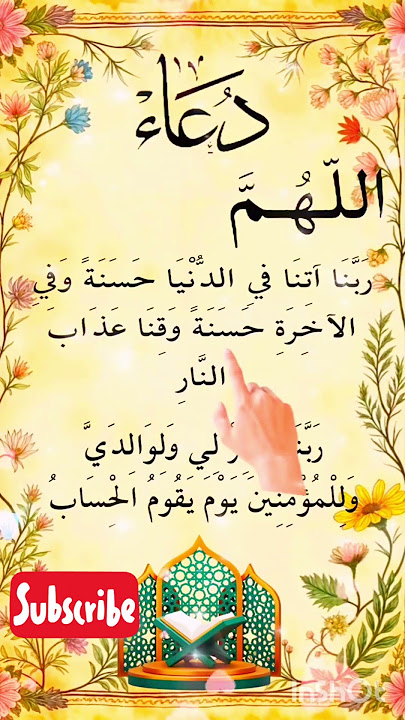 دُعَاء
اللّهُمَّ
رَبَّنَا آتِنَا فِي الدُّنْيَا حَسَنَةً وَفِي
الآخِرَةِ حَسَنَةً وَقِنَا عَذَابَ
النَّارِ
لِي وَلِوَالِدَيَّ
وَلِلْمُؤْمِنِينَ يَوْمَ يَقُومُ الْحِسَابُ
Subscribe
InShOt